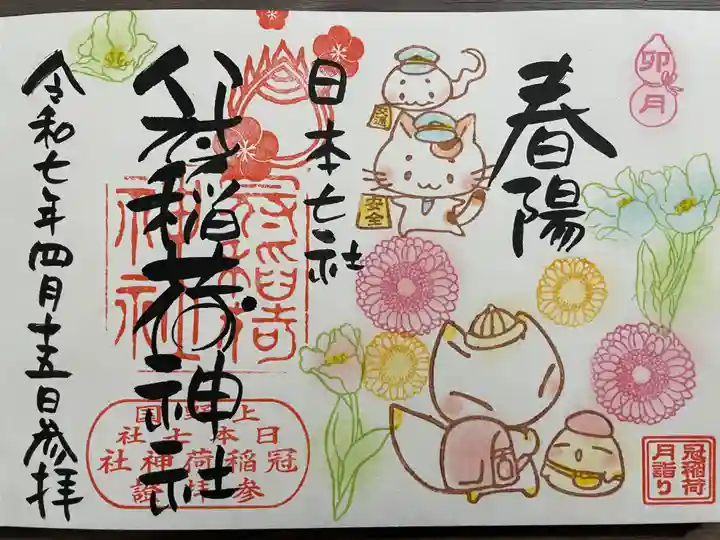 卯月
春陽
交通
安全
日本七社
冠稲荷神社
令和七年四月十五日参拝
冠稲荷
神社
上野国
日本七社
冠稲荷神社
参拝證
冠稲荷
月詣り